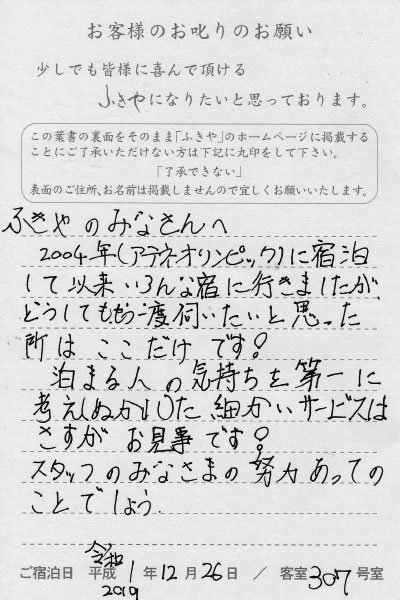 お客様のお叱りのお願い
少しでも皆様に喜んで頂ける
ふきやになりたいと思っております。
この葉書の裏面をそのまま「ふきや」のホームページに掲載する
ことにご了承いただけない方は下記に丸印をして下さい。
「了承できない」
表面のご住所、お名前は掲載しませんので宜しくお願いいたします。
ふきやのみなさんへ
2004年(アテネオリンピック)に宿泊
して以来いろんな宿に行きましたが
どうしてももう一度伺いたいと思った
所は ここだけ です!
泊まる人の気持ちを第一に
考え(ぬかれ)た 細かいサービスは
さすが お見事です!
スタッフのみなさまの努力あっての
ことでしょう
令和
ご宿泊日 平成 1 年 12 月 26 日 / 客室 307 号室
2019